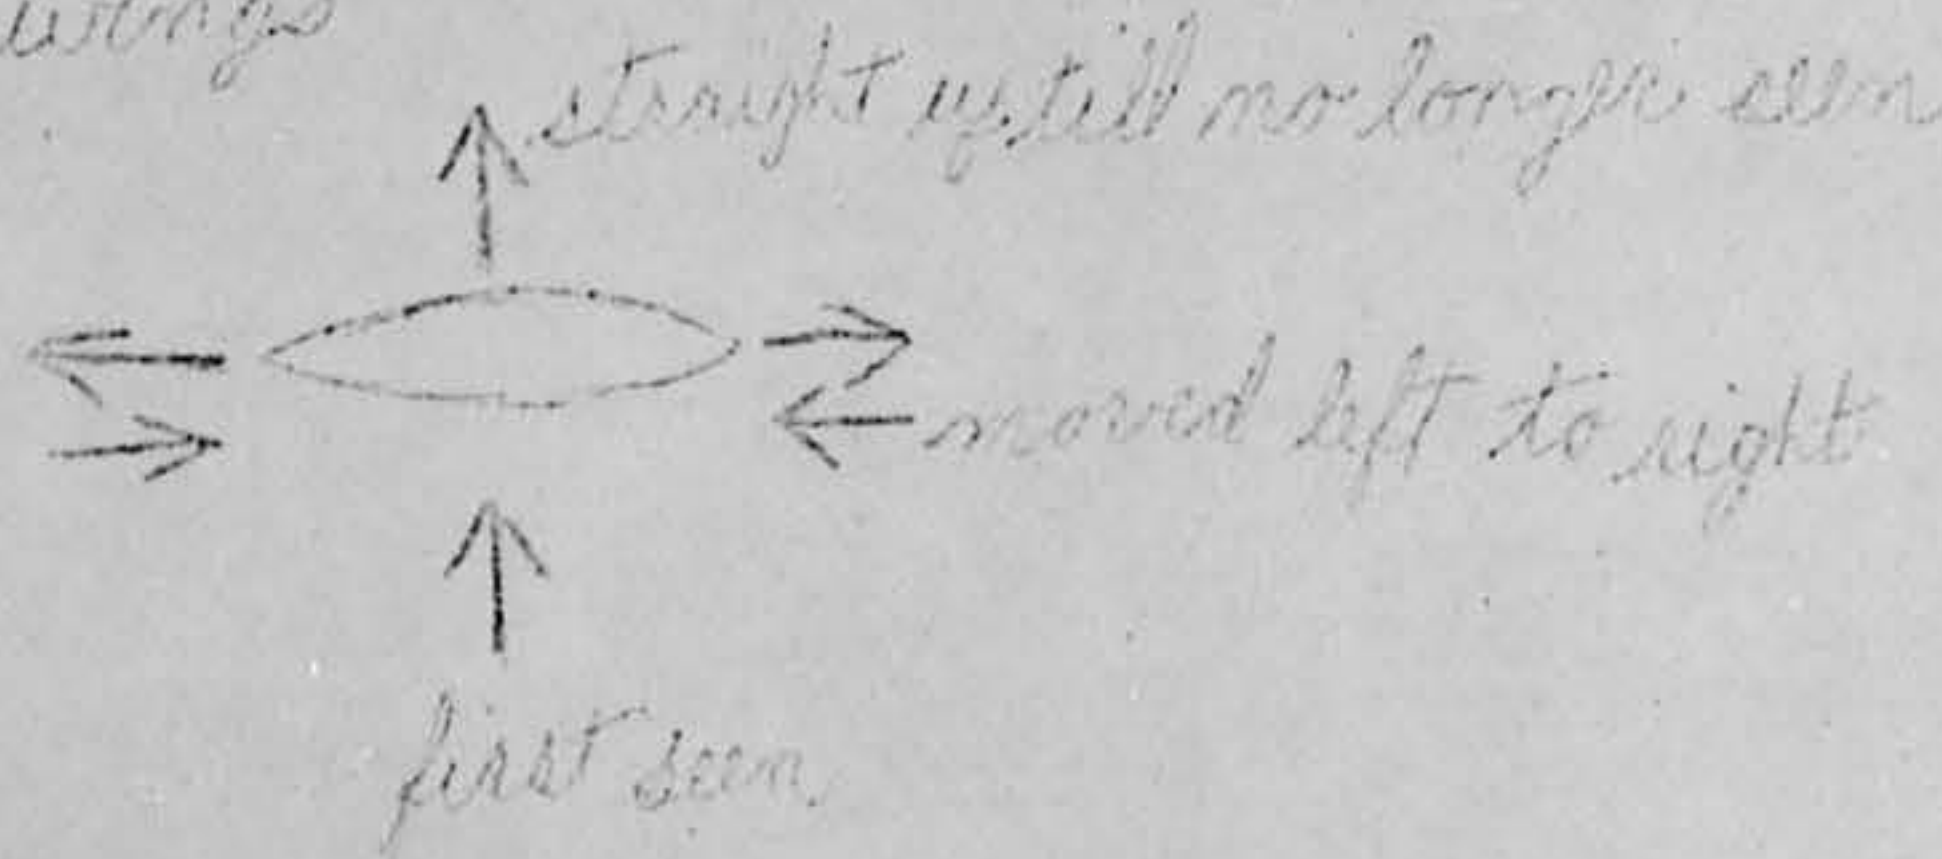 straight up till no longer seen
moved left to right
first seen